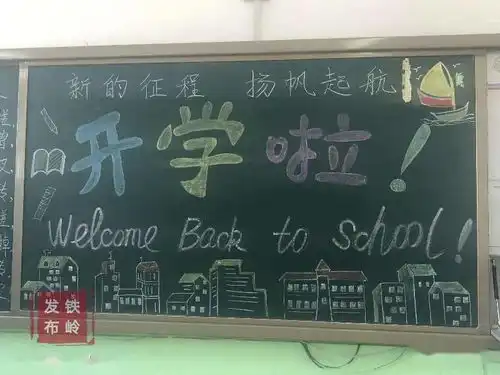 新的征程 扬帆起航
开学啦!
Welcome Back to School!
铁岭
发布